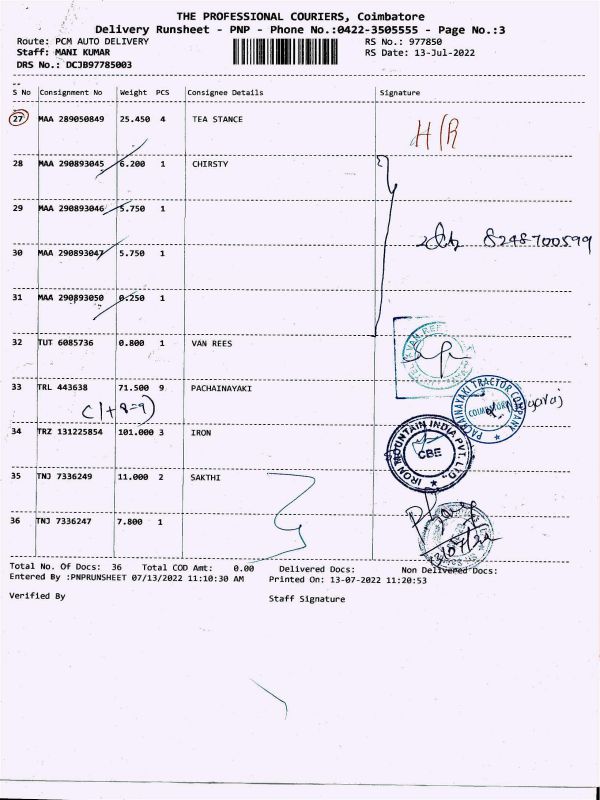 THE PROFESSIONAL COURIERS, Coimbatore
Delivery Runsheet - PNP - Phone No.:0422-3505555 - Page No.:3
Route: PCM AUTO DELIVERY RS No.: 977850
Staff: MANI KUMAR RS Date: 13-Jul-2022
DRS No.: DCJB97785003
S No Consignment No Weight PCS Consignee Details Signature
27 MAA 289050849 25.450 4 TEA STANCE
H/R
28 MAA 290893045 6.200 1 CHIRSTY
29 MAA 290893046 5.750 1
8248700599
30 MAA 290893047 5.750 1
31 MAA 290893050 0.250 1
32 TUT 6085736 0.800 1 VAN REES
VAN REES
33 TRL 443638 71.500 9 PACHAINAYAKI
C(1+8=9)
PACHAINAYAKI TRACTOR COMPANY
COIMBATORE
34 TRZ 131225854 101.000 3 IRON
IRON MOUNTAIN INDIA PVT. LTD.
CBE
35 TNJ 7336249 11.000 2 SAKTHI
36 TNJ 7336247 7.800 1
13/07/22
Total No. Of Docs: 36 Total COD Amt: 0.00 Delivered Docs: Non Delivered Docs:
Entered By :PNPRUNSHEET 07/13/2022 11:10:30 AM Printed On: 13-07-2022 11:20:53
Verified By Staff Signature